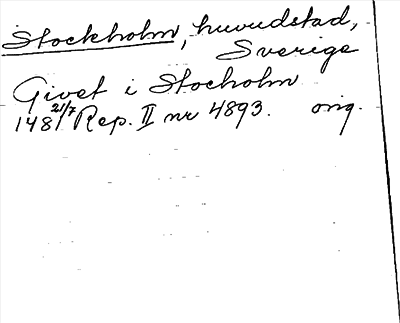 Stockholm, huvudstad,
Sverige
Givet i Stocholm
1481 21/7 Rep. II nr 4893. orig.